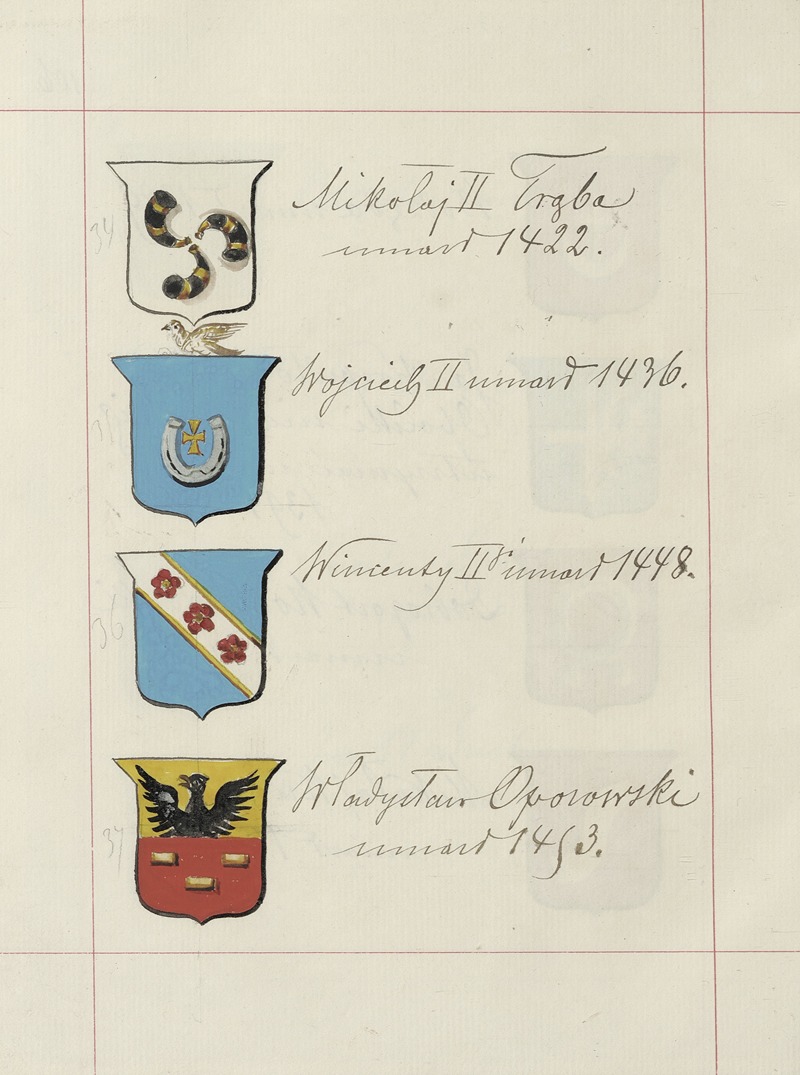 34
Mikołaj II Trąba
umarł 1422.
Wojciech II umarł 1436.
36
Wincenty II umarł 1448.
37
Władysław Oporowski
umarł 1453.